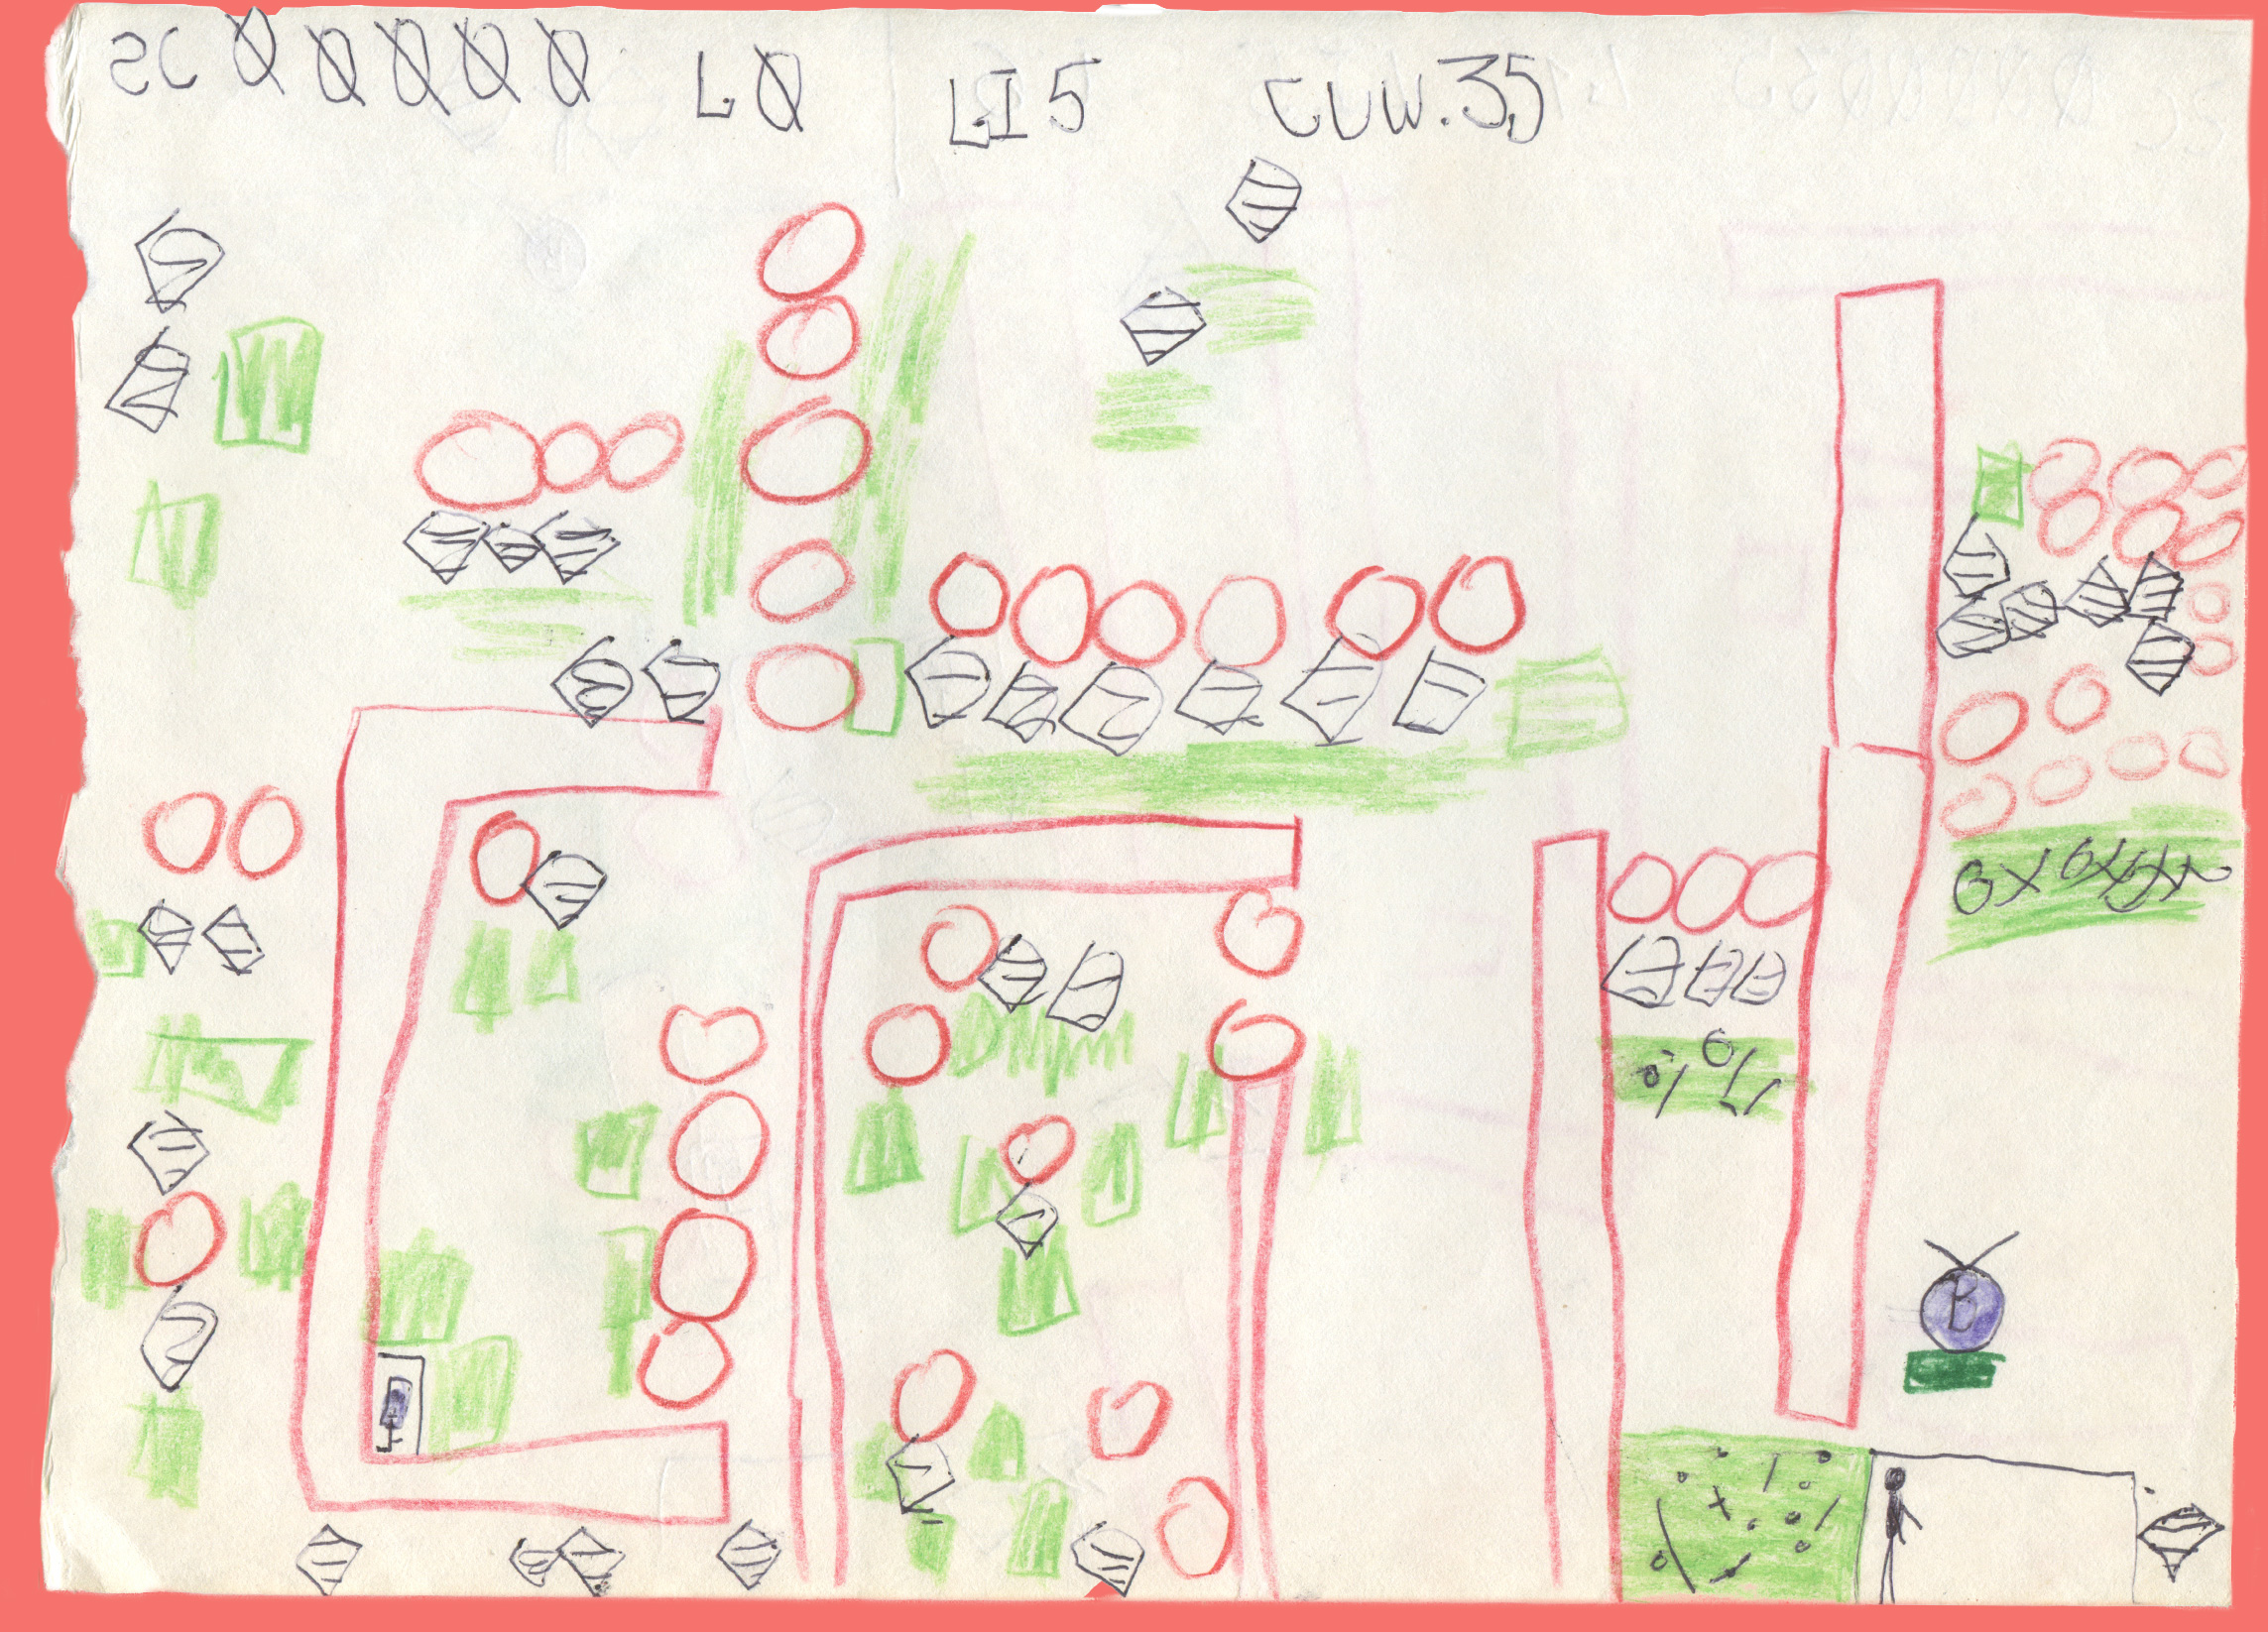 SC 00000 L0 LI5 CUW.35
E